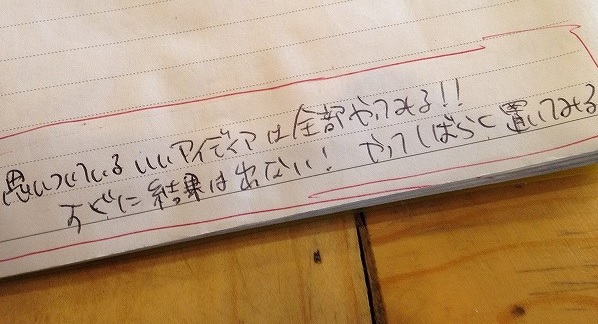 思いついているいいアイディアは全部やってみる!!
すぐに結果は出ない! やってしばらく置いてみる